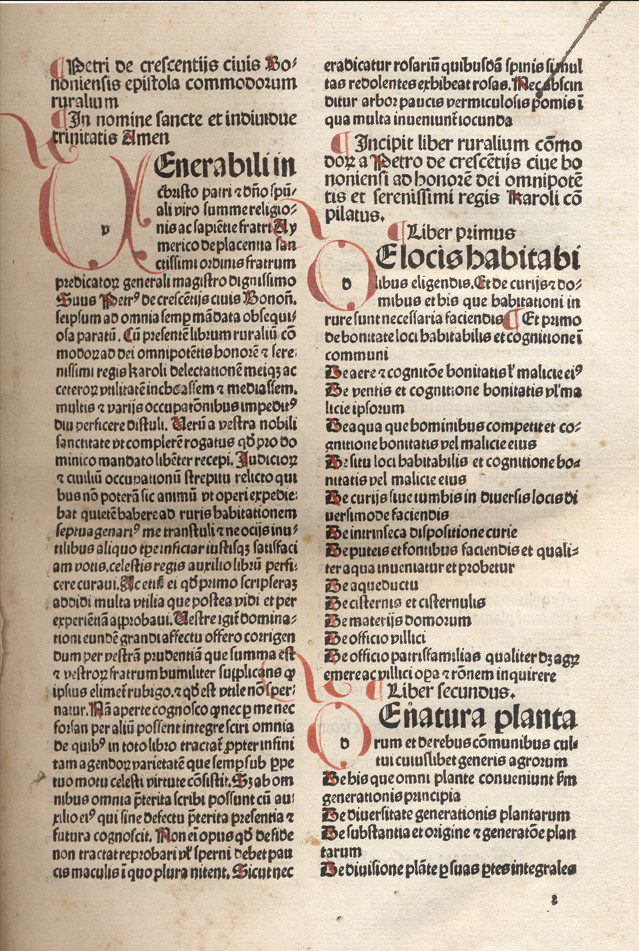 ¶Petri de crescentijs ciuis Bo-
noniensis epistola commodorum
ruralium
¶In nomine sancte et indiuidue
trinitatis Amen
VEnerabili in
v
christo patri ⁊ dño spũ-
ali viro summe religio-
nis ac sapiẽtie fratri Ay
merico de placentia san
ctissimi ordinis fratrum
predicatoꝝ generali magistro dignissimo
Suus Petrꝰ de crescẽtijs ciuis Bonoñ.
seipsum ad omnia semp mãdata obsequi-
osa paratũ. Cũ presentẽ librum ruraliũ cõ
modoꝝ ad dei omnipotẽtis honorẽ ⁊ sere-
nissimi regis karoli delectationẽ meiqꝫ ac
ceteroꝝ vtilitatẽ inchoassem ⁊ mediassem.
multis ⁊ varijs occupatõnibus impeditꝰ
diu perficere distuli. Uerũ a vestra nobili
sanctitate vt complerẽ rogatus qđ pro do
minico mandato libẽter recepi. Judicioꝝ
⁊ ciuiliũ occupationũ strepitu relicto qui
bus nõ poterã sic animũ vt operi expedie-
bat quietẽ habere ad ruris habitationem
septuagenariꝰ me transtuli ⁊ ne ocijs inu-
tilibus aliquo tp̃e inficiar iustisqꝫ satisfaci
am votis. celestis regis auxilio librũ perfi-
cere curaui. Ac etiẽ ei qđ primo scripseraꝫ
addidi multa vtilia que postea vidi et per
experiẽtiã approbaui. Uestre igiť domina-
tioni eundẽ grandi affectu offero corrigen
dum per vestrã prudentiã que summa est
⁊ vestroꝝ fratrum humiliter supplicans ꝙ
ipsius elimeť rubigo. ⁊ qđ est vtile nõ sper-
natur. Nã aperte cognosco ꝙ nec ꝑ me nec
forsan per aliũ possent integre sciri omnia
de quibꝰ in toto libro tractať ꝓpter infini
tam agendoꝝ varietatẽ que semp sub ꝑpe
tuo motu celesti virtute cõsistit. Sꝫ ab om
nibus omnia p̃terita scribi possunt cũ au-
xilio eiꝰ qui sine defectu p̃terita presentia ⁊
futura cognoscit. Non ei opus qđ de fide
non tractat reprobari vł sperni debet pau
cis maculis ĩ quo plura nitent. Sicut nec
eradicatur rosariũ quibusdã spinis si mul
tas redolentes exhibeat rosas. Nec abscin
ditur arbor paucis vermiculosis pomis ĩ
qua multa inueniunť iocunda
¶Incipit liber ruralium cõmo
doꝝ a Petro de crescẽtijs ciue bo
noniensi ad honorẽ dei omnipotẽ
tis et serenissimi regis Karoli cõ
pilatus.
¶Liber primus
DE locis habitabi
d
libus eligendis. Et de curijs ⁊ do-
mibus et his que habitationi in
rure sunt necessaria faciendis ¶Et primo
de bonitate loci habitabilis et cognitione ĩ
communi
De aere ⁊ cognitõe bonitatis ł malicie eiꝰ
De ventis et cognitione bonitatis vł ma
licie ipsorum
De aqua que hominibus competit et co-
gnitione bonitatis vel malicie eius
De situ loci habitabilis et cognitione bo-
nitatis vel malicie eius
De curijs siue tumbis in diuersis locis di
uersimode faciendis
De intrinseca dispositione curie
De puteis et fontibus faciendis et quali-
ter aqua inueniatur et probetur
De aqueductu
De cisternis et cisternulis
De materijs domorum
De officio villici
De officio patrisfamilias qualiter dꝫ agꝝ
emere ac villici oꝑa ⁊ rõnem inquirere
¶Liber secundus.
DE natura planta
d
rum et de rebus cõmunibus cul-
tui cuiuslibet generis agrorum
De his que omni plante conueniunt ẜm
generationis principia
De diuersitate generationis plantarum
De substantia et origine ⁊ generatõe plan
tarum
De diuisione plãte ꝑ suas ꝑtes integrales